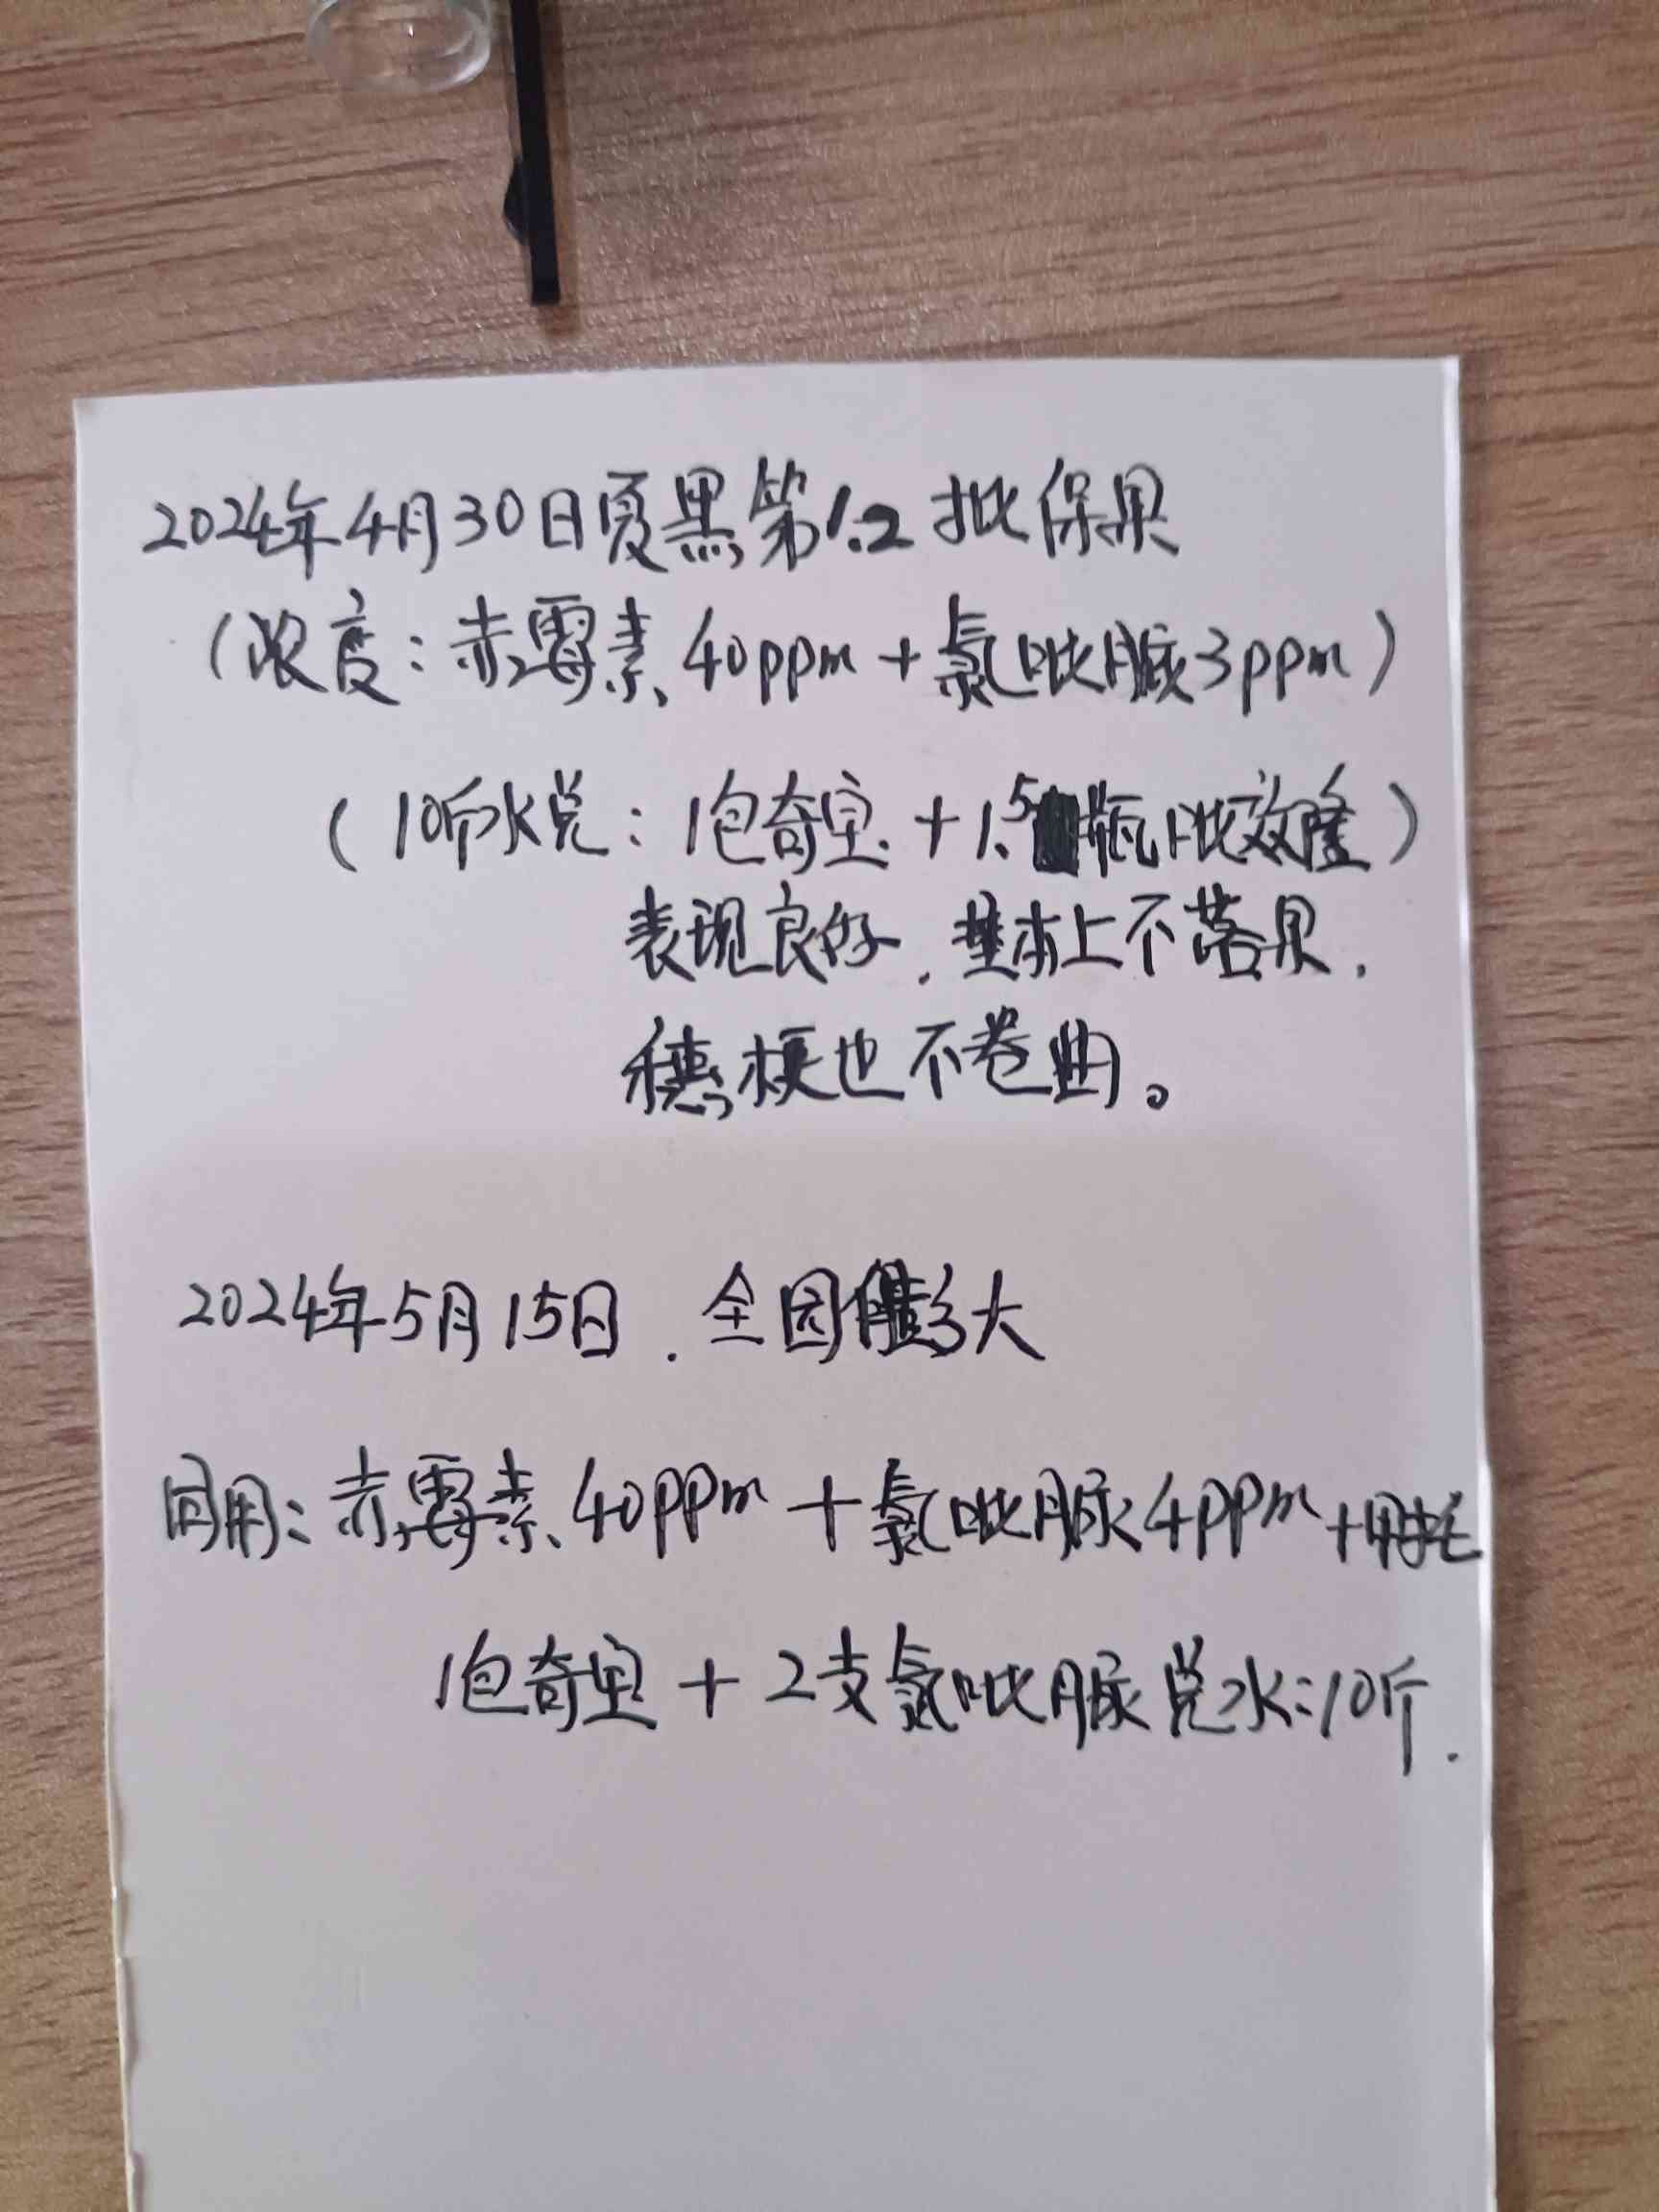 2024年4月30日夏黑第1.2批保果
(浓度:赤霉素40ppm+氯吡脲3ppm)
(10斤水兑:1包奇宝+1.5瓶吡效隆)
表现良好,基本上不落果,
穗梗也不卷曲。
2024年5月15日.全园膨大
同用:赤霉素40ppm+氯吡脲4ppm+
1包奇宝+2支氯吡脲兑水:10斤.